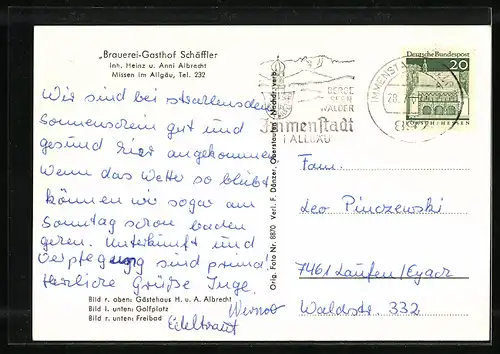 „Brauerei-Gasthof Schäffler
Inh. Heinz u. Anni Albrecht
Missen im Allgäu, Tel. 232
Wir sind bei strahlendem
Sonnenschein gut und
gesund hier angekommen
Wenn das Wetter so bleibt
können wir sogar am
Sonntag schon baden
gehen. Unterkunft und
Verpflegung sind prima!
Herzliche Grüße Inge.
Werner
Edeltraut
Bild r. oben: Gästehaus H. u. A. Albrecht
Bild l. unten: Golfplatz
Bild r. unten: Freibad
Orig. Foto Nr. 8870 Verl. F. Dänzer, Oberstaufen
BERGE
SEEN
WÄLDER
Immenstadt
I ALLGÄU
IMMENSTADT
28.7.
Deutsche Bundespost
20
LORSCH/HESSEN
Fam.
Leo Pinczewski
7461 Laufen/Eyach
Waldstr. 332